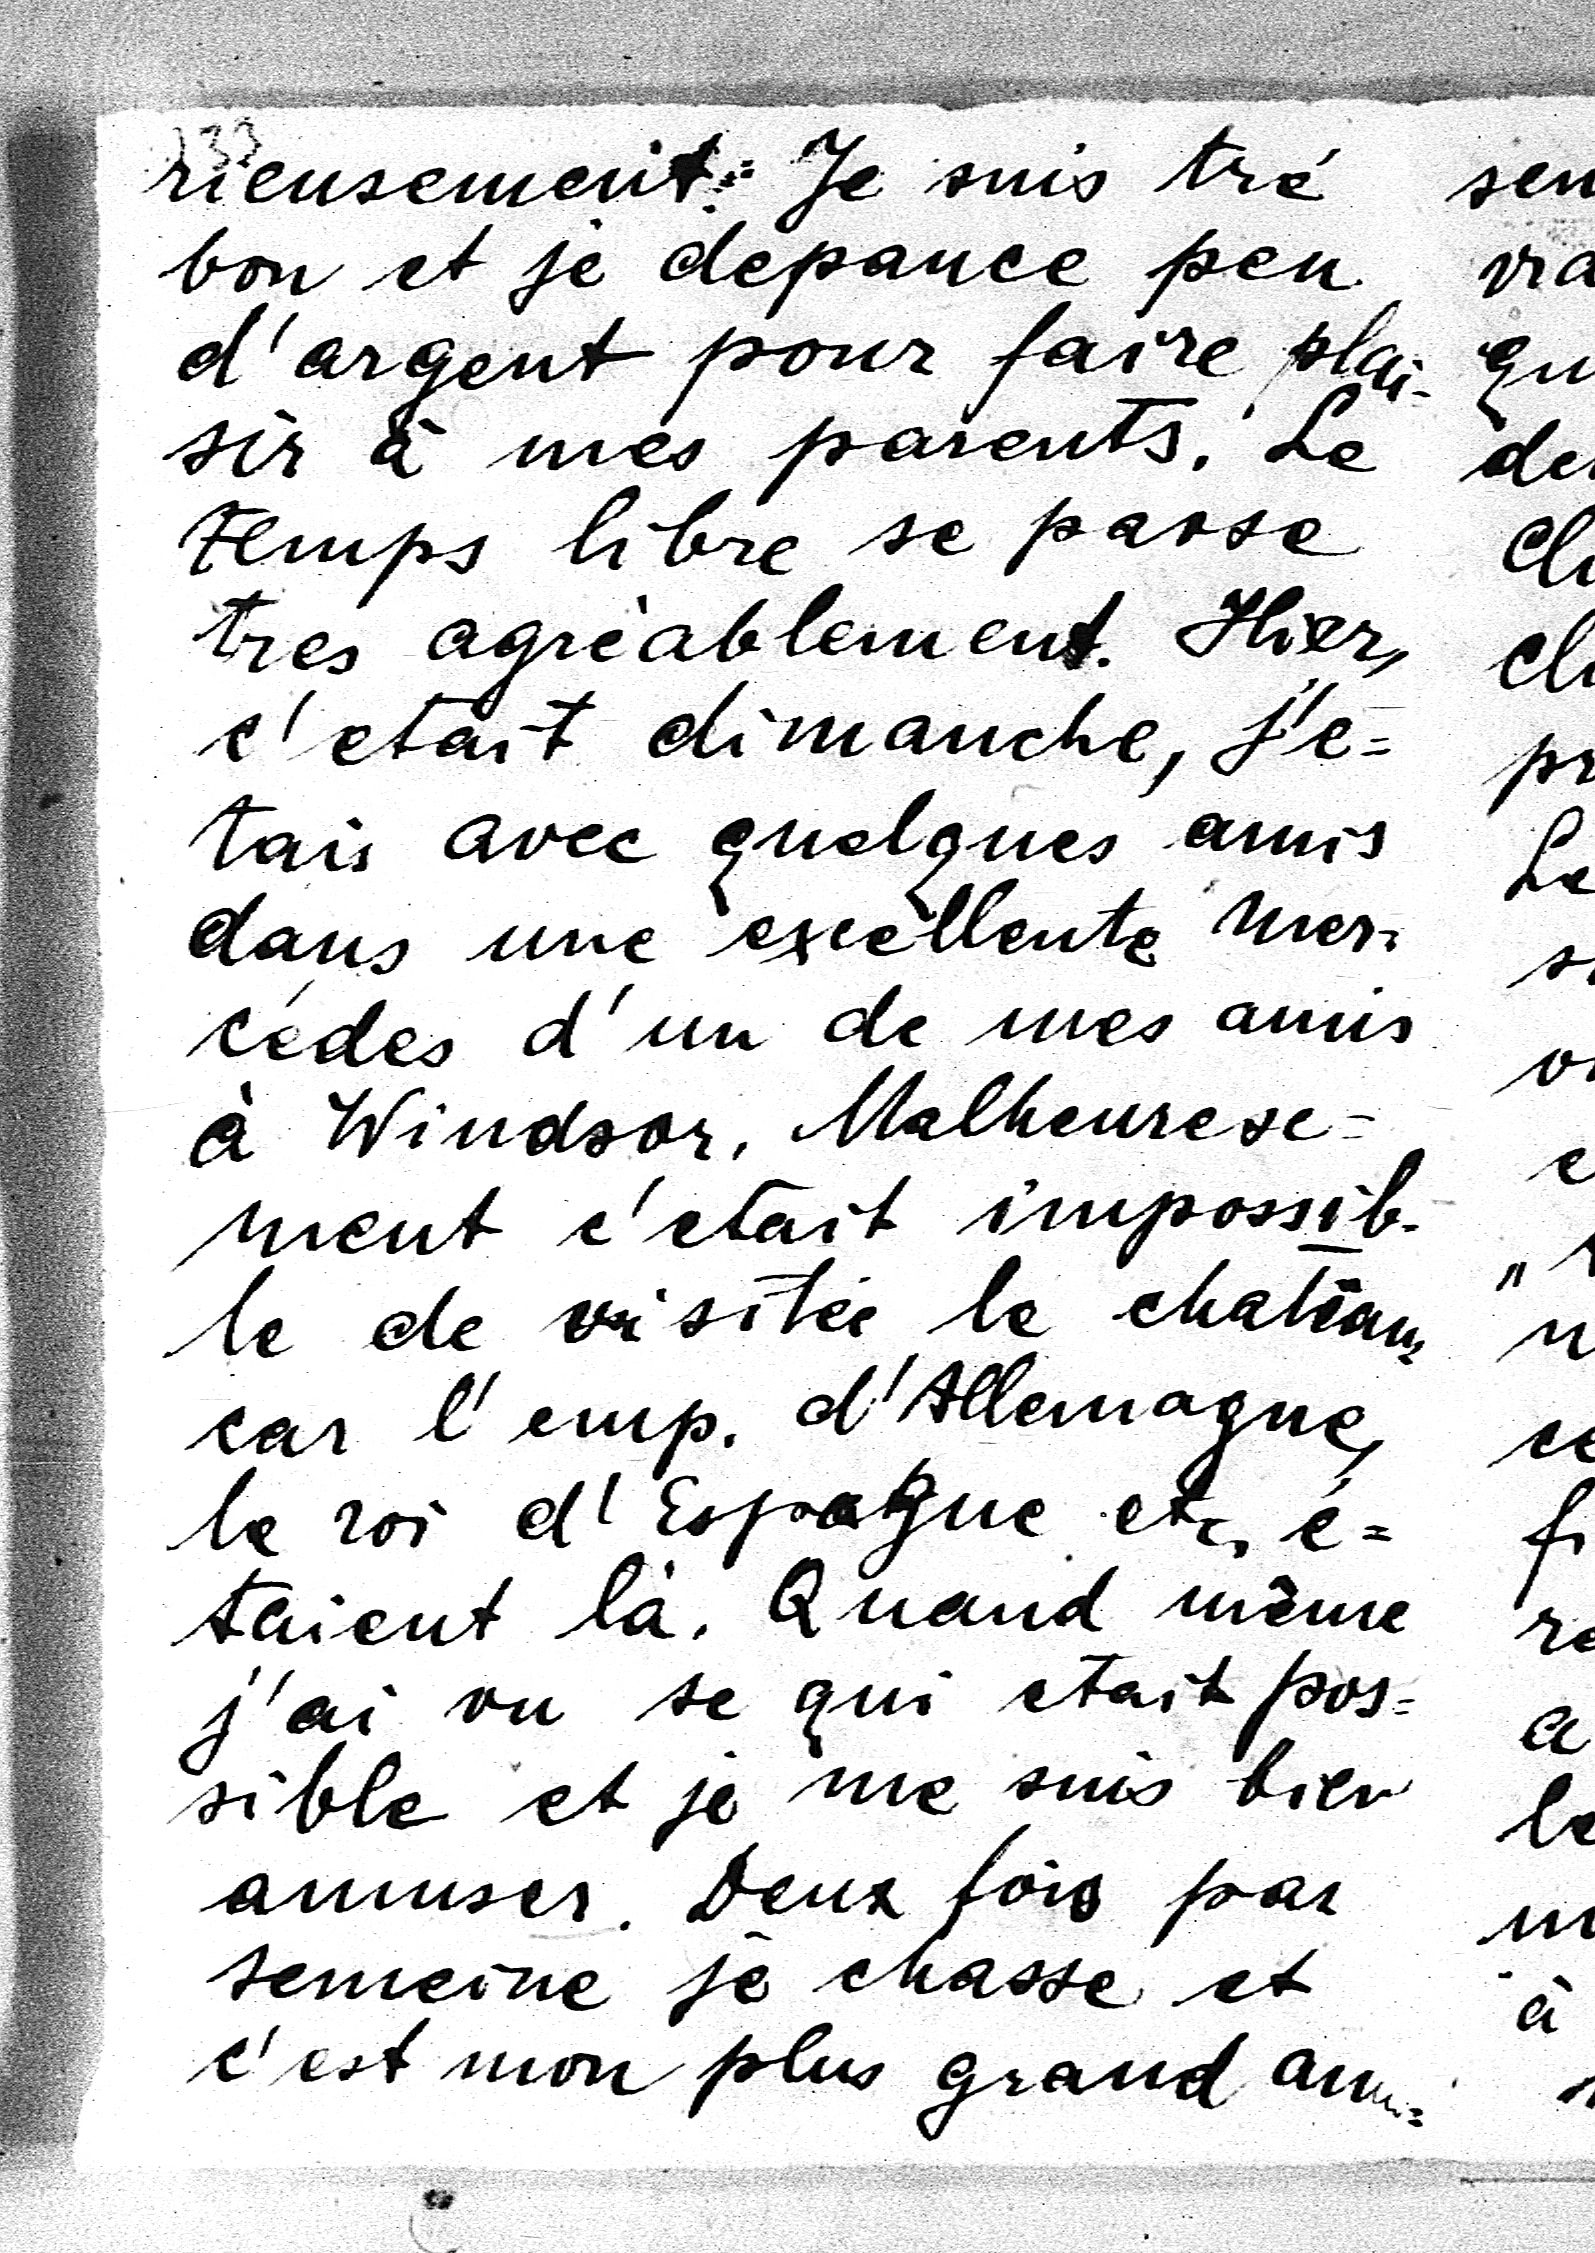 133
rieusement. Je suis tré
bon et je depance peu
d'argent pour faire plai-
sir à mes parents. Le
temps libre se passe
tres agréablement. Hier,
c'etait dimanche, j'e=
tais avec quelques amis
dans une excellente Mer-
cédes d'un de mes amis
à Windsor. Malheurese=
ment c'etait impossib-
le de visitée le chateau,
car l'emp. d'Allemagne,
le roi d'Espagne etc, é=
taient là. Quand même
j'ai vu se qui etait pos=
sible et je me suis bien
amuser. Deux fois par
semeine je chasse et
c'est mon plus grand amu=